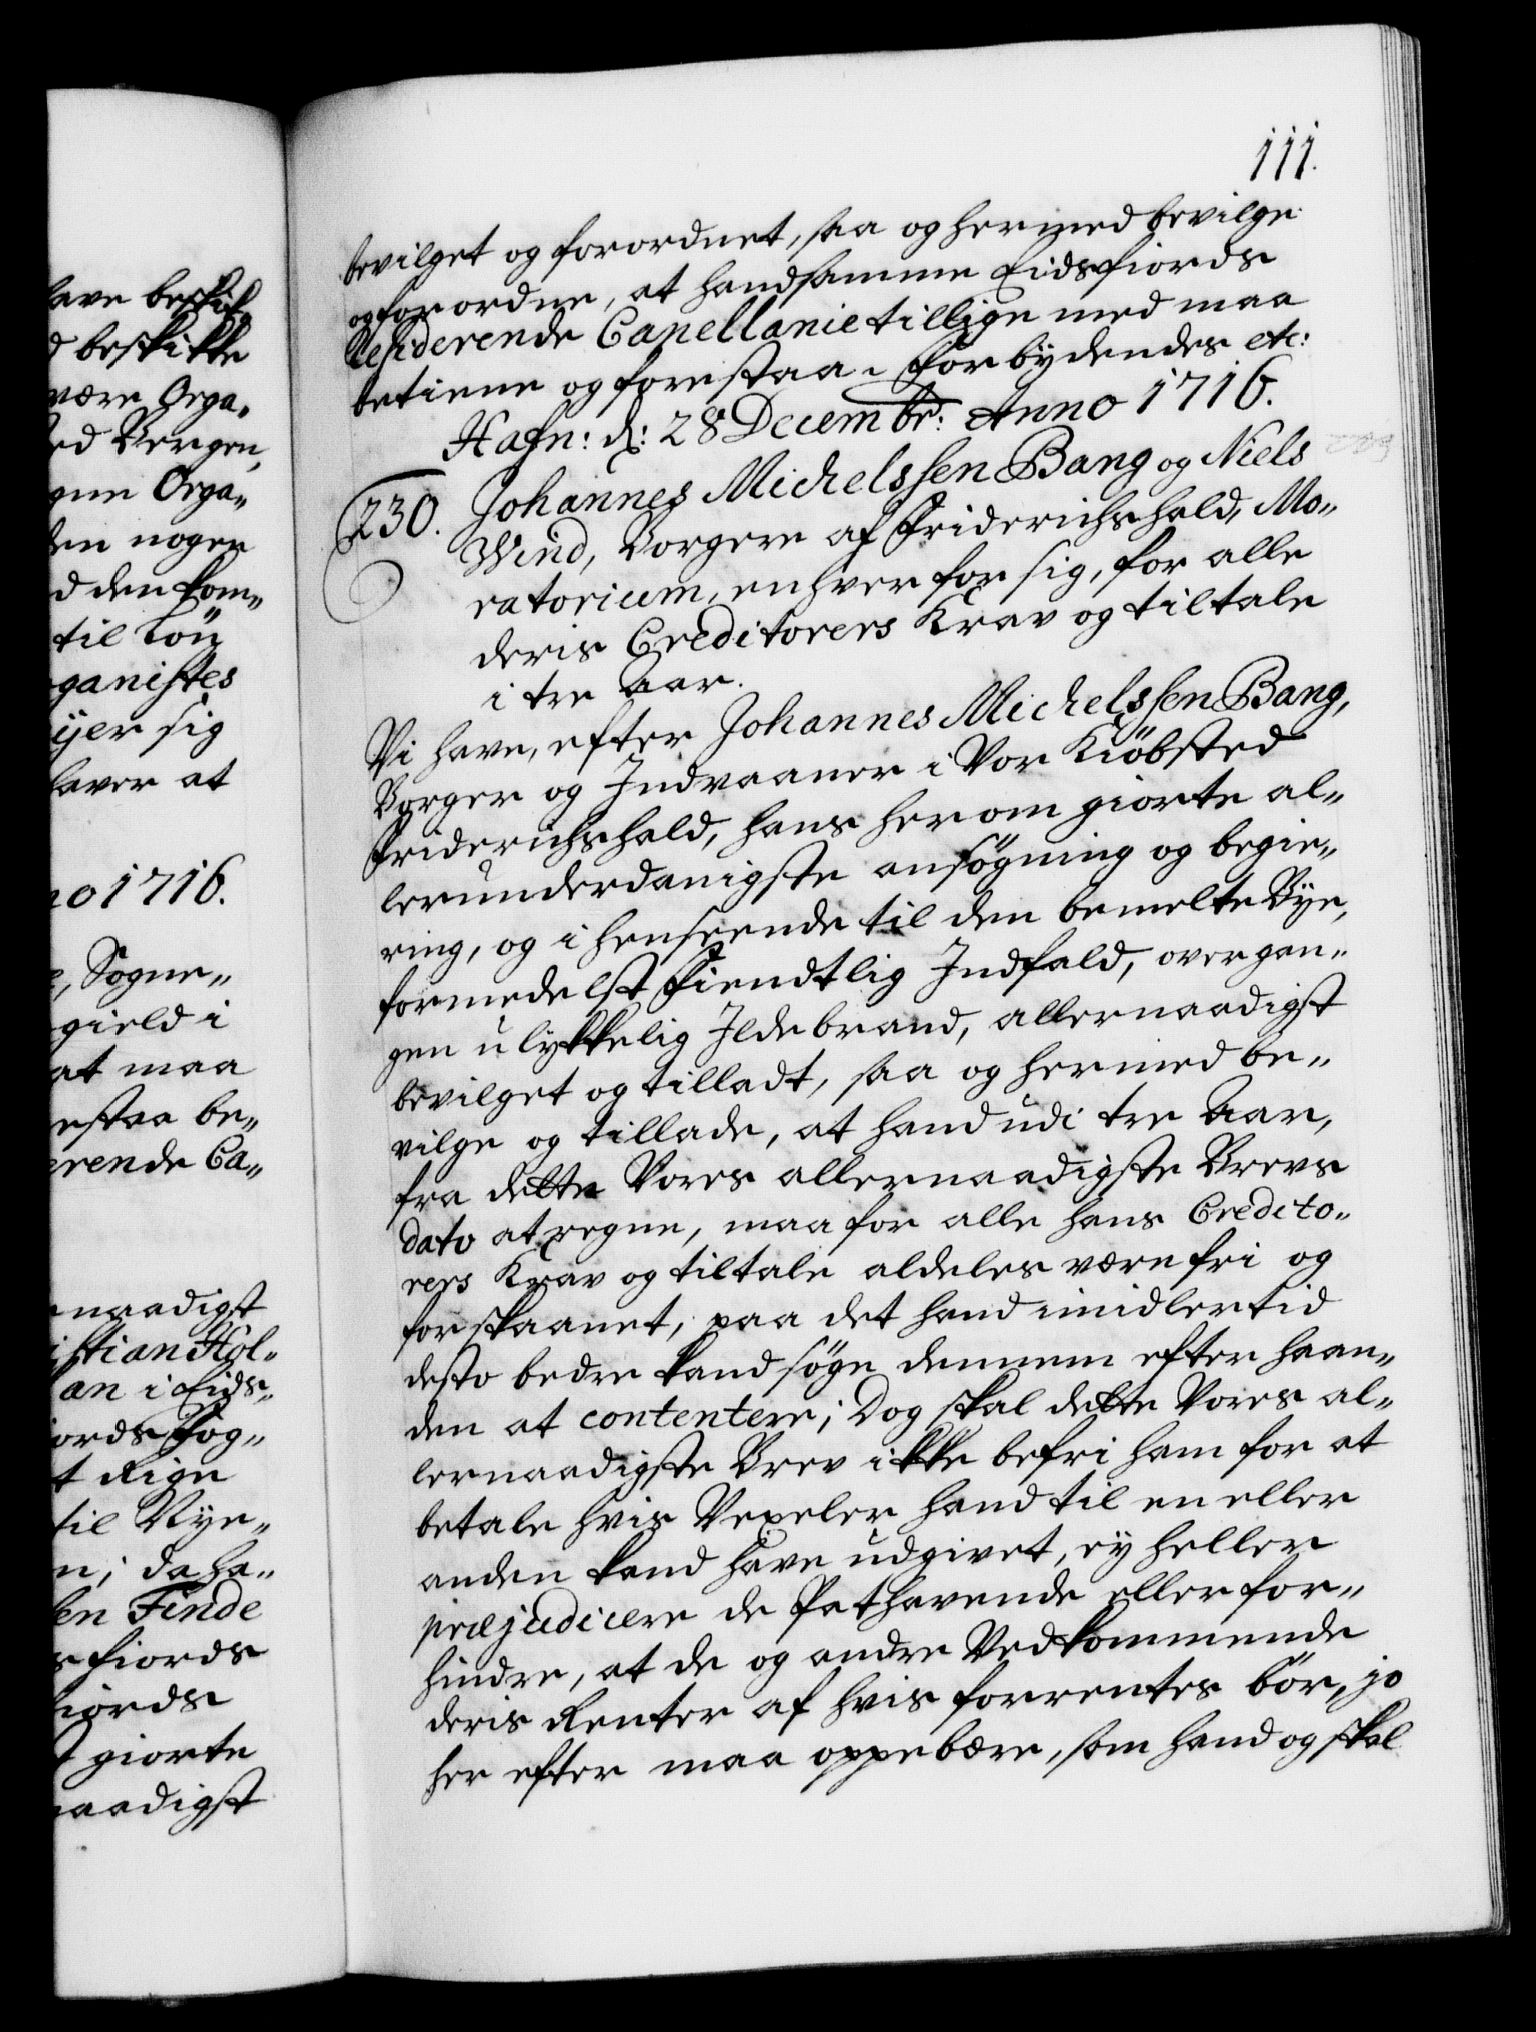 111.
bevilget og forordnet, saa og hermed bevilge
og forordne, at handsamme Eidsfiords
Residerende Capellanie tillige med maa
betiene og forestaa. Forbydendes etc:
Hafn: d: 28 Decembr: Anno 1716.
230. Johannes Michelssen Bang og Niels
Wind, Borgere af Friderichshald, Mo„
ratorium, enhver for sig, for alle
deris Creditorers Krav og tiltale
i tre Aar.
Vi have, efter Johannes Michelssen Bang,
Borger og Indvaaner i Vor Kiöbsted
Friderichshald, hans herom giorte al„
lerunderdanigste ansögning og begie„
ring, og i henseende til den bemelte Bye,
formedelst Fiendtlig Indfald, overgan„
gen ulykkelig Ildebrand, allernaadigst
bevilget og tilladt, saa og hermed be„
vilge og tillade, at hand udi tre Aar,
fra dette Vores allernaadigste Brevs
dato at regne, maa for alle hans Credito„
rers Krav og tiltale aldeles være fri og
forskaanet, paa det hand imidlertid
desto bedre kand söge dennem efter haan„
den at contentere; Dog skal dette Vores al„
lernaadigste Brev ikke befri ham for at
betale hvis Vexeler hand til en eller
anden kand have udgivet, ey heller
præjudicere de Pathavende eller for„
hindre, at de og andre Vedkommende
deris Renter af hvis forrentes bör, jo
her efter maa oppebære, som hand og skal
lave beskik„
d beskikke
være Orga„
ed Bergen,
gne Orga„
den nogen
d den kom„
til Lön
ganistes
yer sig
laver at
no 1716.
e, Sogne„
gield i
at maa
estaa be„
erende Ca„
naadigst
istian Hol„
an i Eids„
iords Fog„
t Rige
til Nye„
n; da ha„
sen Finde
s fiords
fiords
t giorte
naadigst